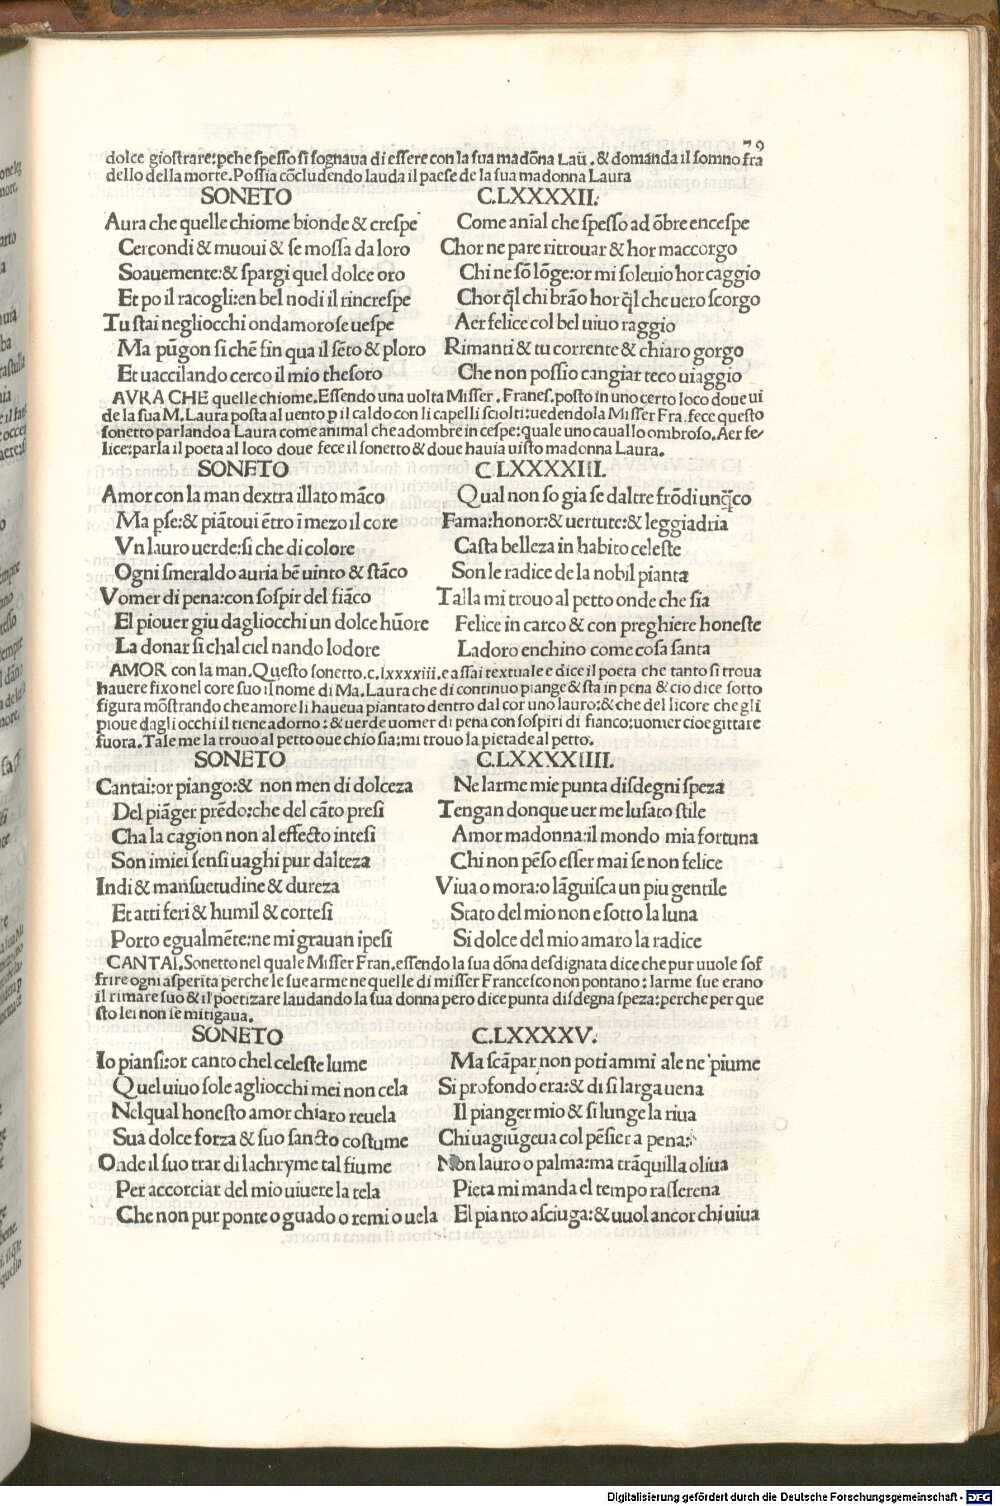 79
dolce giostrare:ꝑche spesso si sognaua di essere con la sua madõna Laũ.& domanda il somno fra
dello della morte.Possia cõcludendo lauda il paese de la sua madonna Laura
SONETO C.LXXXXII.
Aura che quelle chiome bionde & crespe
Cercondi & muoui & se mossa da loro
Soauemente:& spargi quel dolce oro
Et po il racogli:en bel nodi il rincrespe
Tu stai negliocchi ondamorose uespe
Ma pũgon si chẽ fin qua il sẽto & ploro
Et uaccilando cerco il mio thesoro
Come anĩal che spesso ad õbre encespe
Chor ne pare ritrouar & hor maccorgo
Chi ne sõ lõge:or mi soleuio hor caggio
Chor q̃l chi brão hor q̃l che uero scorgo
Aer felice col bel uiuo raggio
Rimanti & tu corrente & chiaro gorgo
Che non possio cangiar teco uiaggio
AVRA CHE quelle chiome.Essendo una uolta Misser.Frances.posto in uno certo loco doue ui
de la sua M.Laura posta al uento ꝑ il caldo con li capelli sciolti:uedendola Misser Fra.fece questo
sonetto parlando a Laura come animal che adombre in cespe:quale uno cauallo ombroso.Aer fe-
lice:parla il poeta al loco doue fece il sonetto & doue hauia uisto madonna Laura.
SONETO C.LXXXXIII.
Amor con la man dextra illato mãco
Ma ꝑse:& piãtoui ẽtro ĩ mezo il core
Vn lauro uerde:si che di colore
Ogni smeraldo auria bẽ uinto & stãco
Vomer di pena:con sospir del fiãco
El piouer giu dagliocchi un dolce hũore
La donar si chal ciel nando lodore
Qual non so gia se daltre frõdi unq̃co
Fama:honor:& uertute:& leggiadria
Casta belleza in habito celeste
Son le radice de la nobil pianta
Talla mi trouo al petto onde che sia
Felice in carco & con preghiere honeste
Ladoro enchino come cosa santa
AMOR con la man.Questo sonetto.c.lxxxxiii.e assai textuale e dice il poeta che tanto si troua
hauere fixo nel core suo il nome di Ma.Laura che di continuo piange & sta in pena & cio dice sotto
figura mõstrando che amore li haueua piantato dentro dal cor uno lauro:& che del licore che gli
pioue dagli occhi il tiene adorno:& uerde uomer di pena con sospiri di fianco:uomer cioe gittare
fuora.Tale me la trouo al petto oue chio sia:mi trouo la pietade al petto.
SONETO C.LXXXXIIII.
Cantai:or piango:& non men di dolceza
Del piãger prẽdo:che del cãto presi
Cha la cagion non al effecto intesi
Son i miei sensi uaghi pur dalteza
Indi & mansuetudine & dureza
Et atti feri & humil & cortesi
Porto egualmẽte:ne mi grauan ipesi
Ne larme mie punta disdegni speza
Tengan donque uer me lusato stile
Amor madonna:il mondo mia fortuna
Chi non pẽso esser mai se non felice
Viua o mora:o lãguisca un piu gentile
Stato del mio non e sotto la luna
Si dolce del mio amaro la radice
CANTAI.Sonetto nel quale Misser Fran.essendo la sua dõna desdignata dice che pur uuole sof
frire ogni asperita perche le sue arme ne quelle di misser Francesco non pontano:larme sue erano
il rimare suo & il poetizare laudando la sua donna pero dice punta disdegna speza:perche per que
sto lei non se mitigaua.
SONETO C.LXXXXV.
Io piansi:or canto chel celeste lume
Quel uiuo sole agliocchi mei non cela
Nelqual honesto amor chiaro reuela
Sua dolce forza & suo sancto costume
Onde il suo trar di lachryme tal fiume
Per accorciar del mio uiuere la tela
Che non pur ponte o guado o remi o uela
Ma scãpar non poti ammi ale ne piume
Si profondo era:& di si larga uena
Il pianger mio & si lunge la riua
Chi uagiũgeua col pẽsier a pena:
Non lauro o palma:ma trãquilla oliua
Pieta mi manda el tempo rasserena
El pianto asciuga:& uuol ancor chi uiua
Digitalisierung gefördert durch die Deutsche Forschungsgemeinschaft - DFG